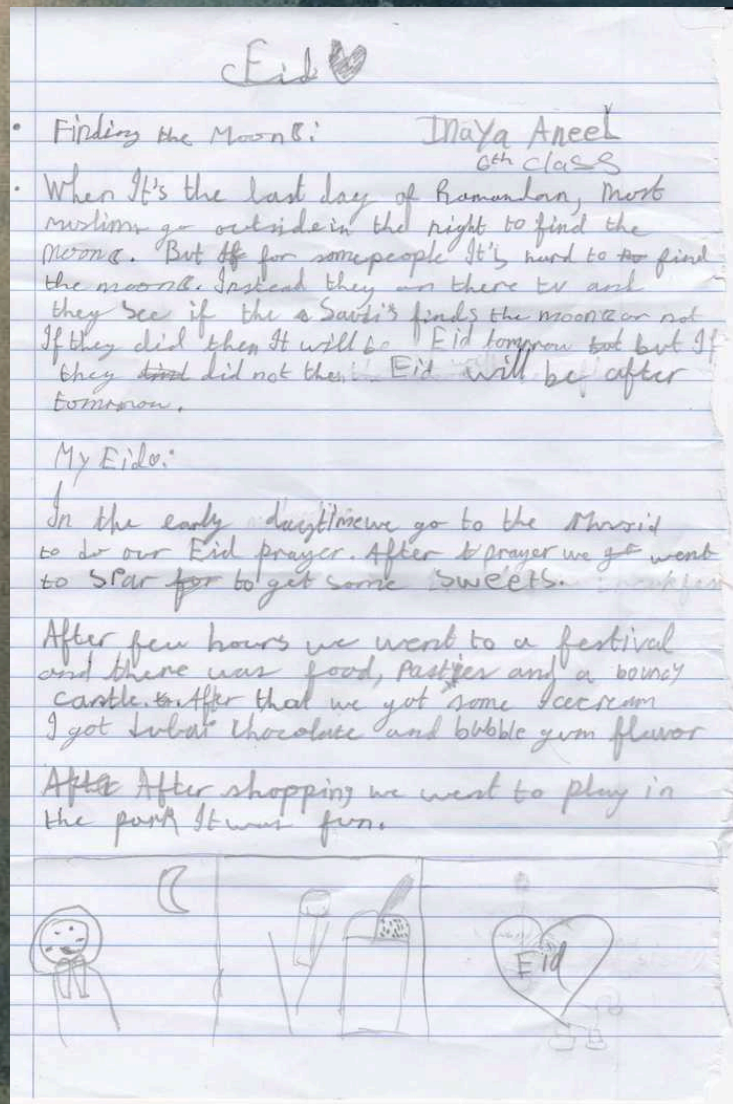 Eid
Finding the Moon:
Inaya Aneel
6th class
When It's the last day of Ramandan, Most
muslims go outside in the night to find the
moon. But for some people It's hard to find
the moon. Instead they on there tv and
they see if the Saudi's finds the moon or not
If they did then It will be Eid tomorrow but If
they did not then Eid will be after
tomorrow.
My Eid:
In the early daytime we go to the
to do our Eid prayer. After prayer we went
to Spar to get some sweets.
After few hours we went to a festival
and there was food, Pasties and a bouncy
castle. After that we got some Icecream
I got chocolate and bubble gum flavor
After shopping we went to play in
the park It was fun.
Eid